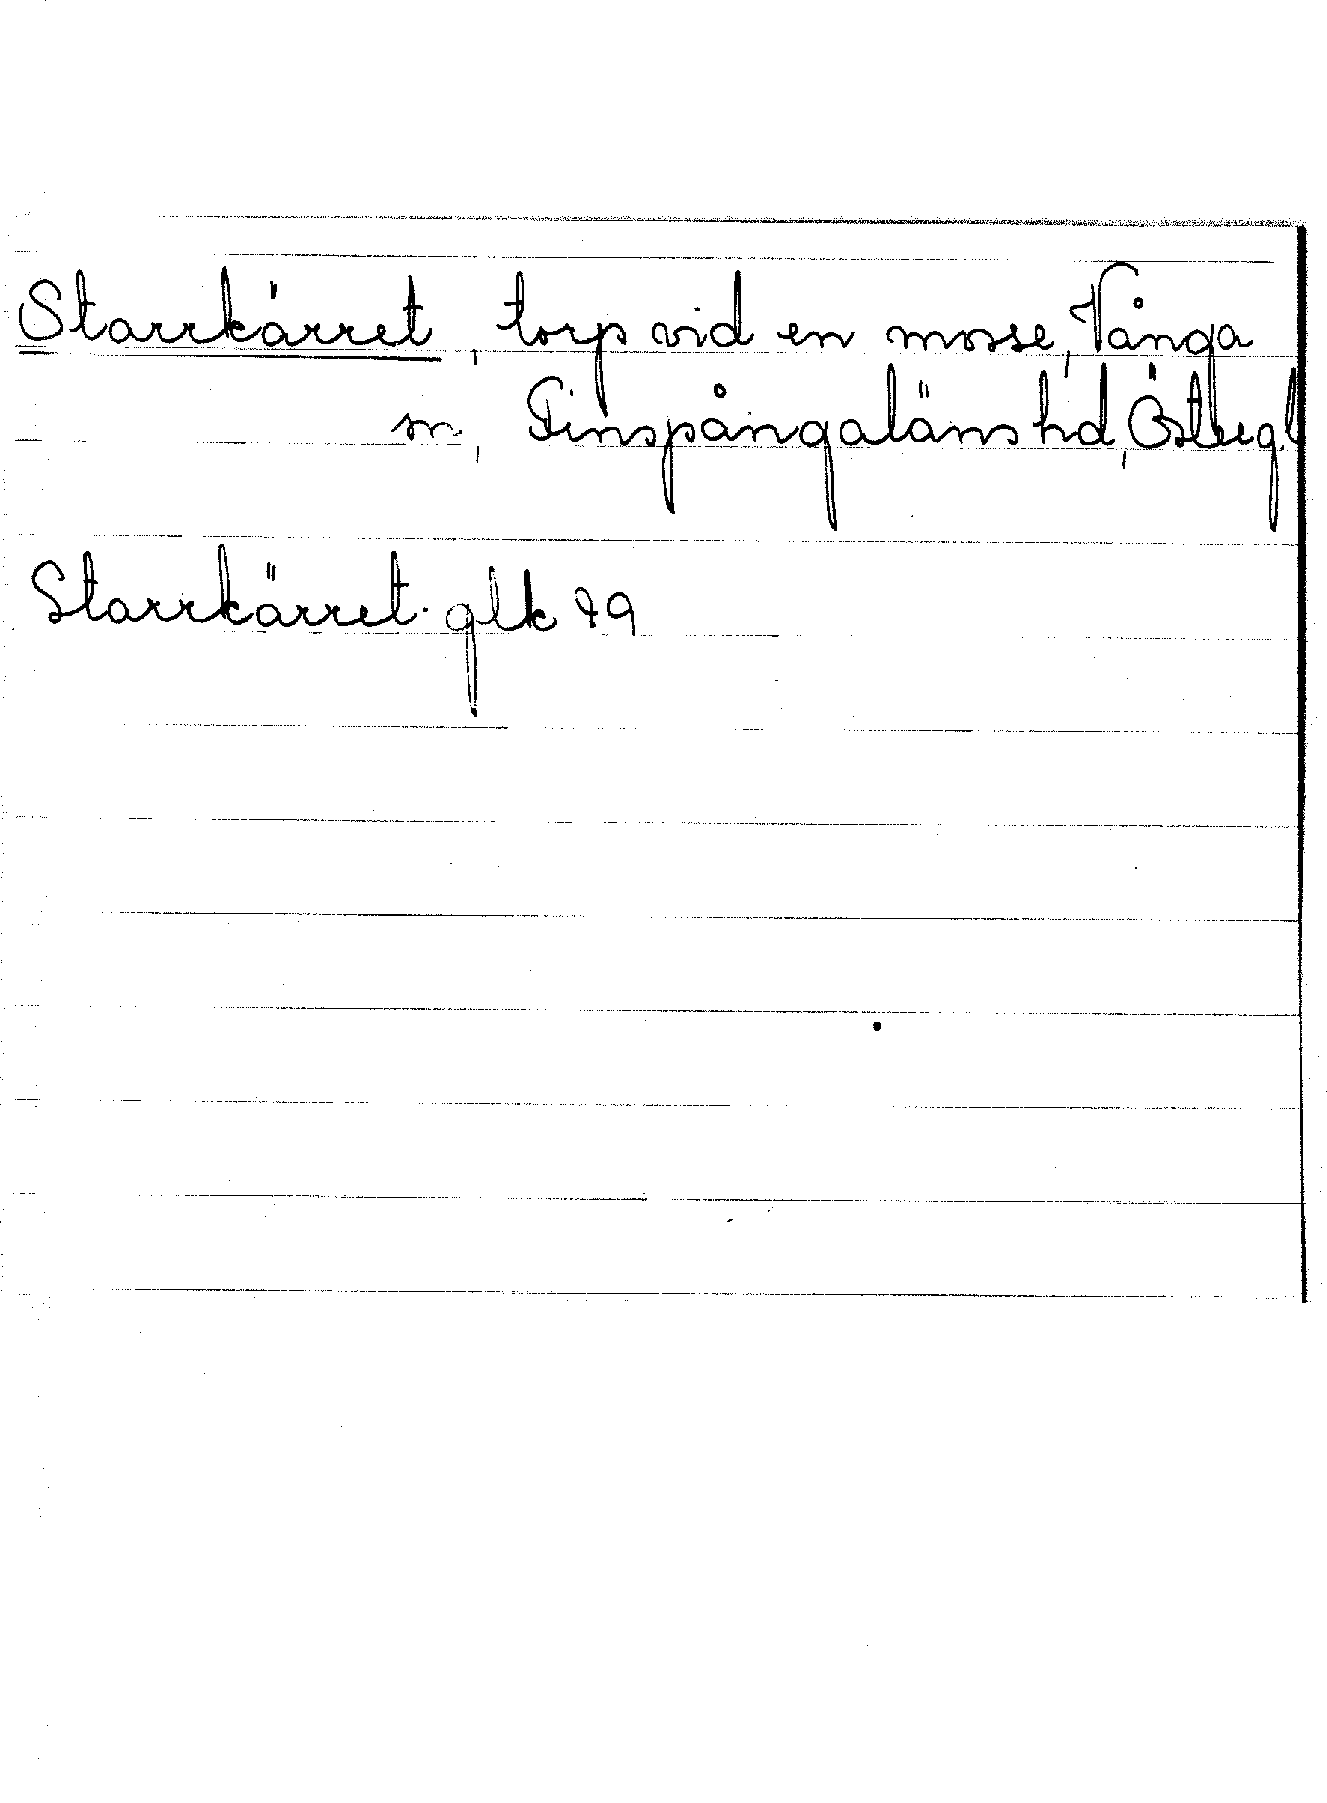 Starrkärret, torp vid en mosse, Vånga
sn, Finspångaläns hd, Östergl
Starrkärret. glk 79